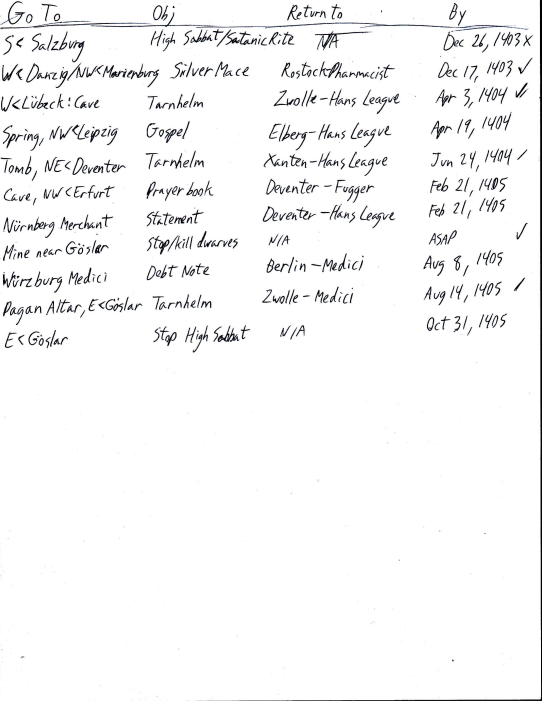 Go To Obj Return to By
S< Salzburg High Sabbat/Satanic Rite N/A Dec 26, 1403 x
W<Danzig/NW<Marienburg Silver Mace Rostock Pharmacist Dec 17, 1403 ✓
W<Lübeck: Cave Tarnhelm Zwolle-Hans League Apr 3, 1404 ✓
Spring, NW<Leipzig Gospel Elberg-Hans League Apr 19, 1404
Tomb, NE<Deventer Tarnhelm Xanten-Hans League Jun 24, 1404 ✓
Cave, NW<Erfurt Prayer book Deventer-Fugger Feb 21, 1405
Nürnberg Merchant Statement Deventer-Hans League Feb 21, 1405
Mine near Göslar Stop/kill dwarves N/A ASAP ✓
Würzburg Medici Debt Note Berlin-Medici Aug 8, 1405
Pagan Altar, E<Göslar Tarnhelm Zwolle-Medici Aug 14, 1405 ✓
E<Göslar Stop High Sabbat N/A Oct 31, 1405